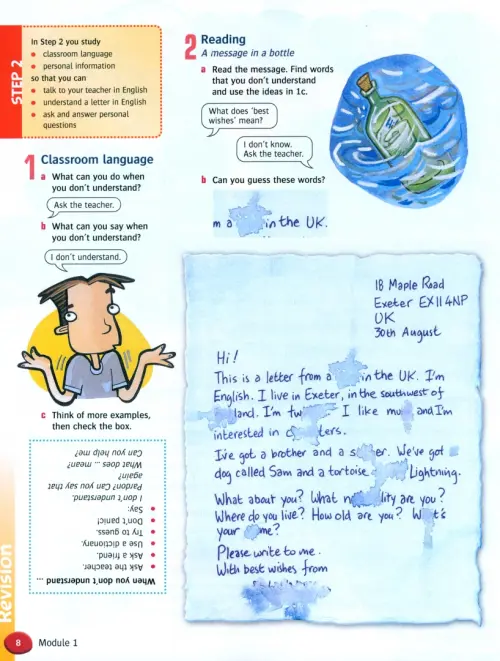 STEP 2
In Step 2 you study
• classroom language
• personal information
so that you can
• talk to your teacher in English
• understand a letter in English
• ask and answer personal
questions
1 Classroom language
a What can you do when
you don't understand?
Ask the teacher.
b What can you say when
you don't understand?
I don't understand.
c Think of more examples,
then check the box.
When you don't understand ...
• Ask the teacher.
• Ask a friend.
• Use a dictionary.
• Try to guess.
• Don't panic!
• Say:
I don't understand.
Pardon? Can you say that
again?
What does ... mean?
Can you help me?
2 Reading
A message in a bottle
a Read the message. Find words
that you don't understand
and use the ideas in 1c.
What does 'best
wishes' mean?
I don't know.
Ask the teacher.
b Can you guess these words?
m a in the UK.
18 Maple Road
Exeter EX11 4NP
UK
30th August
Hi!
This is a letter from a in the UK. I'm
English. I live in Exeter, in the southwest of
land. I'm tw I like mu and I'm
interested in c ters.
I've got a brother and a s er. We've got
dog called Sam and a tortoise Lightning.
What about you? What n lity are you?
Where do you live? How old are you? W t's
your me?
Please write to me.
With best wishes from
Revision
8 Module 1